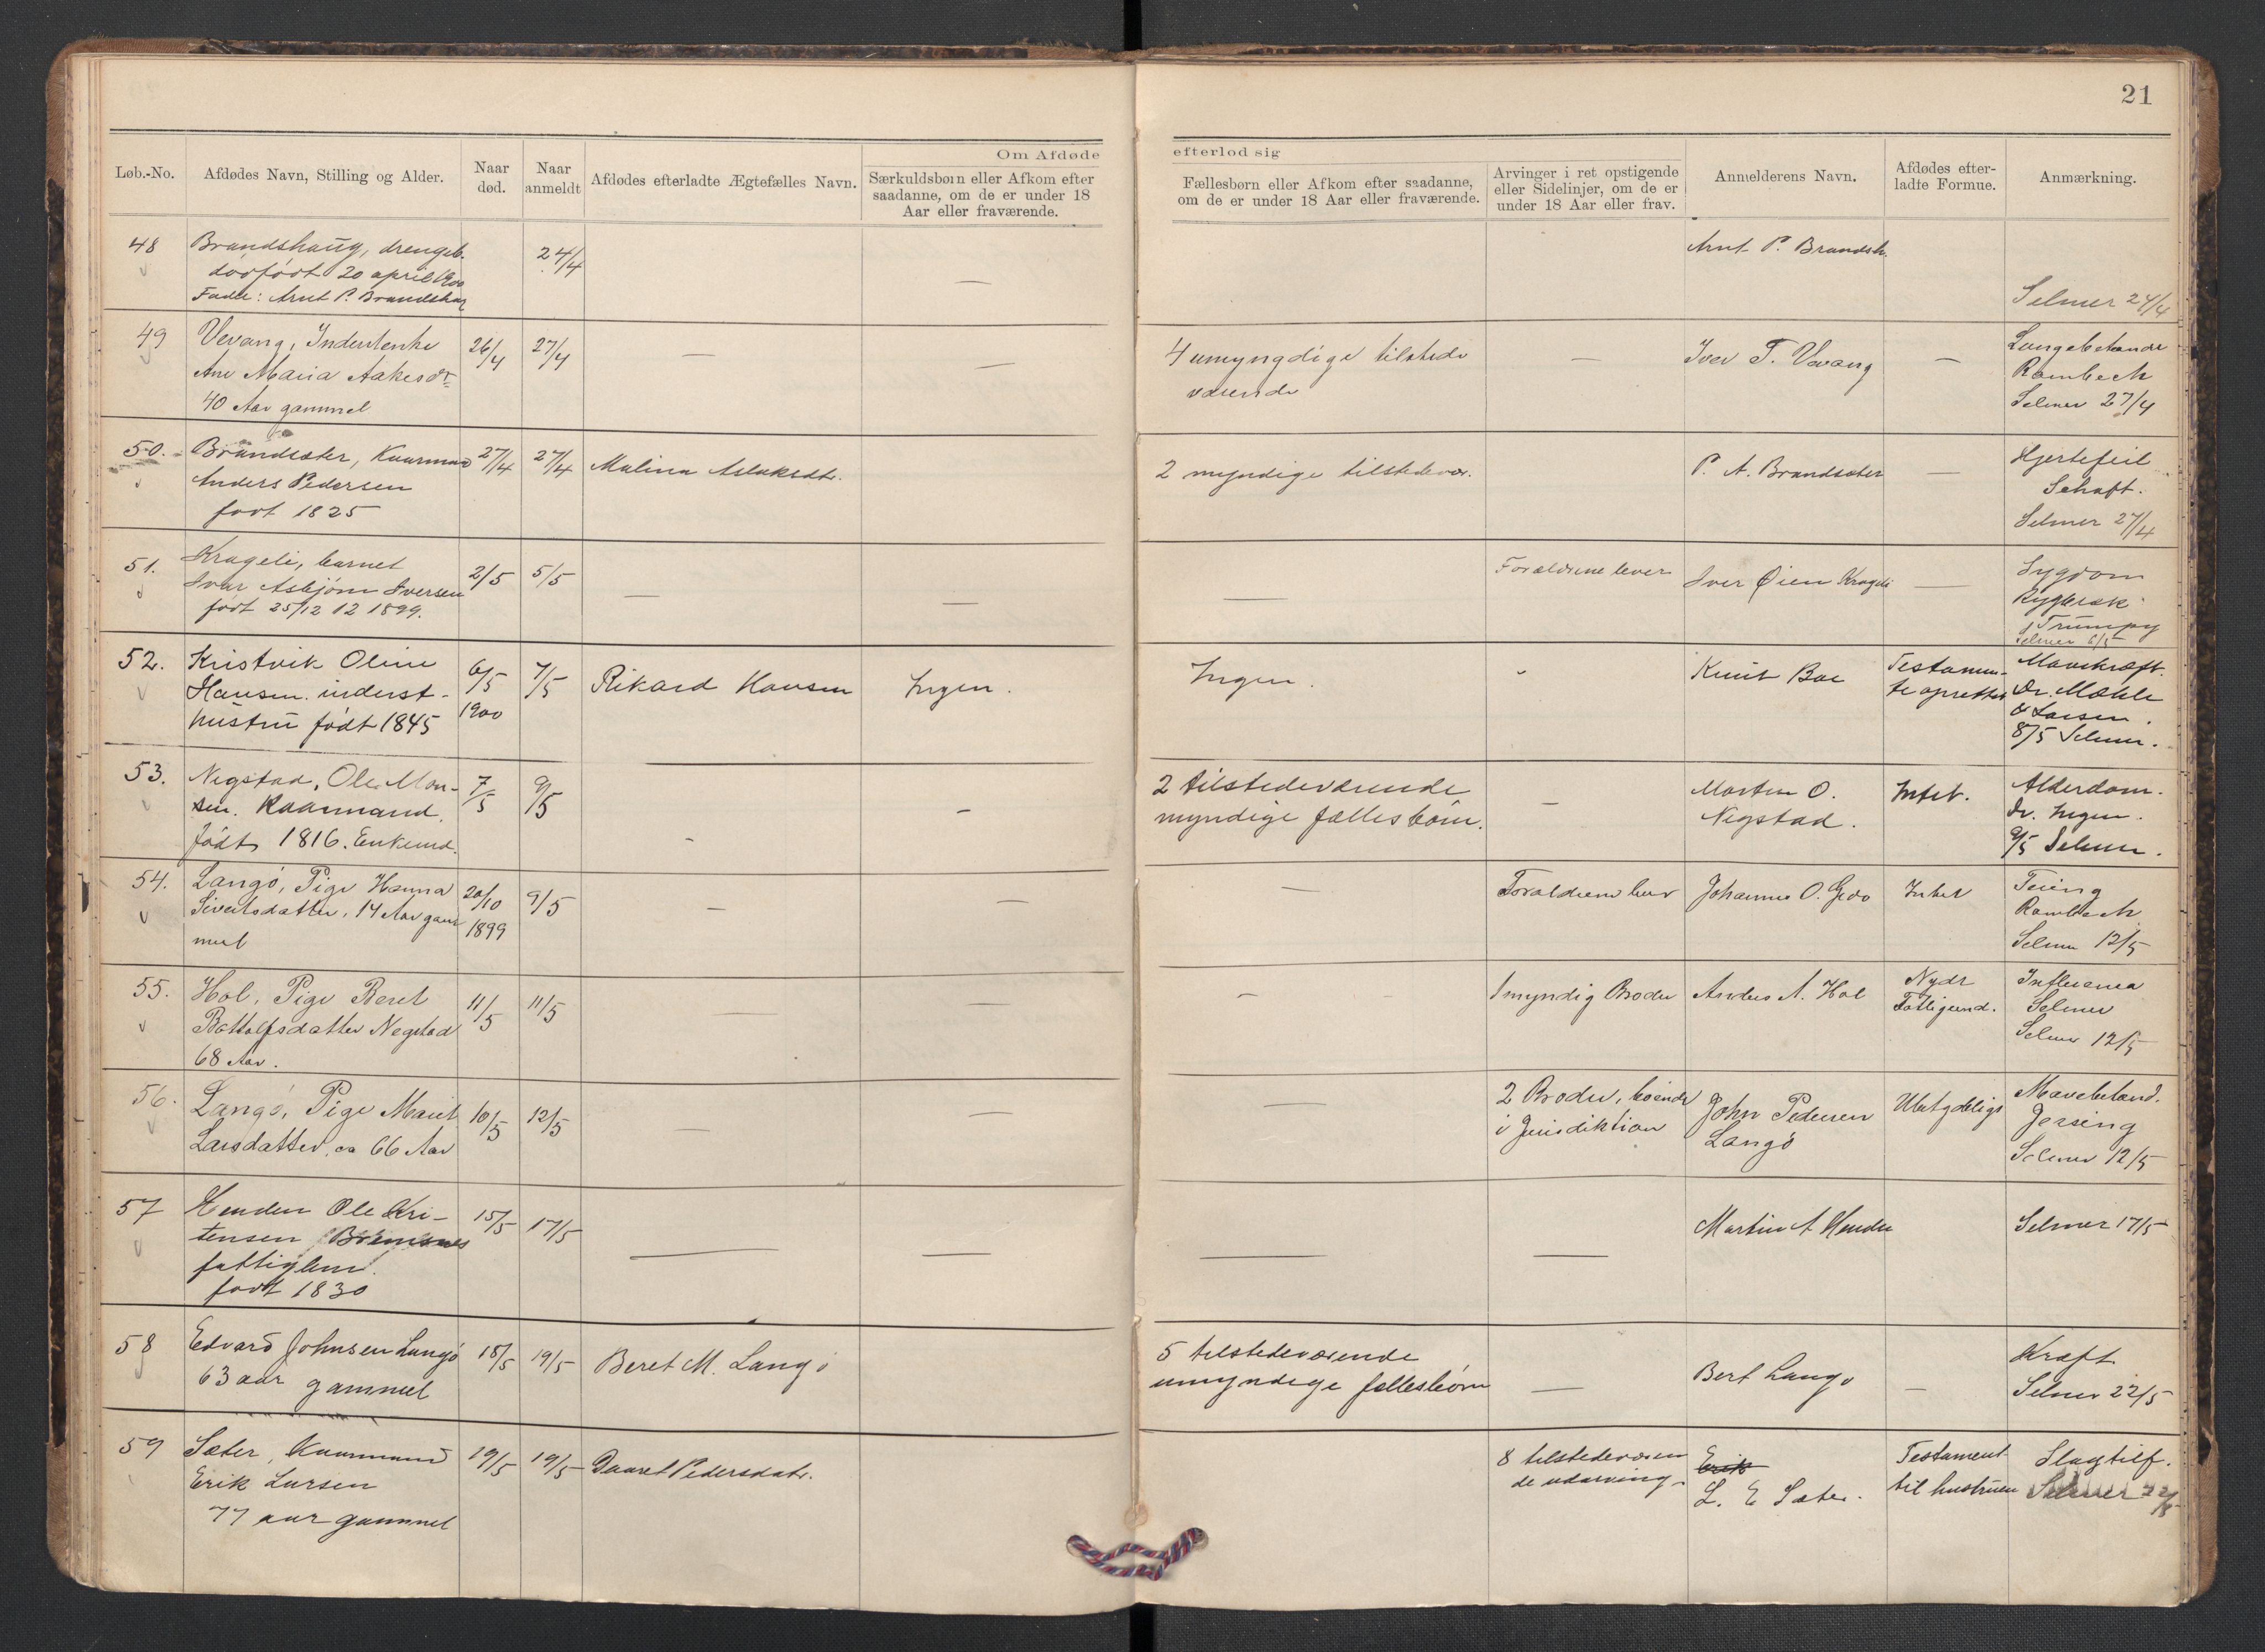 21
Om Afdøde
efterlod sig
Løb.-No.
Afdødes Navn, Stilling og Alder.
Naar død.
Naar anmeldt
Afdødes efterladte Ægtefælles Navn.
Særkuldsbørn eller Afkom efter
saadanne, om de er under 18
Aar eller fraværende.
Fællesbørn eller Afkom efter saadanne,
om de er under 18 Aar eller fraværende.
Arvinger i ret opstigende
eller Sidelinjer, om de er
under 18 Aar eller frav.
Anmelderens Navn.
Afdødes efter-
ladte Formue.
Anmærkning.
48 Brandshaug, drengeb. 24/4 Arnt P. Brandsh.
dødfødt 20 april 1900
Fader: Arnt P. Brandshaug
Selmer 24/4
49 Vevang, Inderstenke 26/4 27/4 — — 4 umyngdige tilstede — Iver T. Vevang — Lungebetændr
Ane Maria Aakesdt. værende Rambech
40 Aar gammel Selmer 27/4
50. Brandsæter, Kaarmand 27/4 27/4 Malina Aslaksdtr. 2 myndige tilstedevær. P. A. Brandsæter — Hjertefeil
Anders Pedersen Schaft.
født 1825 Selmer 27/4
51. Krageli, barnet 2/5 5/5 — — — Forældrene lever Iver Øien Krageli — Sygdom
Ivar Asbjørn Iversen Rygbræk
født 25/12 12 1899. Trumpy
Selmer 6/5
52. Kristvik Oline 6/5 7/5 Rikard Hansen Ingen. Ingen. Knut Boe Testamen- Mavekræft.
Hansen. inderst- 1900 te oprettet Dr. Mæhle
hustru født 1845 & Larsen.
8/5 Selmer.
53. Negstad, Ole Mon- 7/5 9/5 - - 2 tilstedeværende — Morten O. Intet. Alderdom.
sen. Kaarmand. myndige fællesbørn. Negstad. Dr. Ingen.
født 1816. Enkemd. 9/5 Selmer.
54. Langø, Pige Hanna 20/10 9/5 — — — Forældrene lever Johannes O. Intet Tering
Sivertsdatter, 14 Aar gam 1899 Rambech
mel Selmer 12/5
55. Hol, Pige Beret 11/5 11/5 — — — 1 myndig Broder Anders A. Hol Nydt Influensa
Bottolfsdatter Negstad Fattigund. Selmer
68 Aar. Selmer 12/5
56. Langø, Pige Marit 10/5 12/5 — — — 2 Brødre, boende John Pedersen Ubetydeligt Mavebetænd.
Larsdatter, ca 66 Aar i Jurisdiktion Langø Jersing
Selmer 12/5
57 Henden Ole Kri- 15/5 17/5 — — — — Martin A Henden Selmer 17/5
tensen Bremsnes
fattiglem.
født 1830
58 Edvard Johnsen Langø 18/5 19/5 Beret M. Langø 5 tilstedeværende — Bert Langø — Kræft
63 aar gammel umyndige fællesbørn Selmer 22/5
59 Sæter, Kaarmand 19/5 19/5 Daaret Pedersdatr. 8 tilstedeværen Erik Testament Slagtilf.
Erik Larsen de udarving. L. E Sæter. til hustruen Selmer 22/5
77 aar gammel